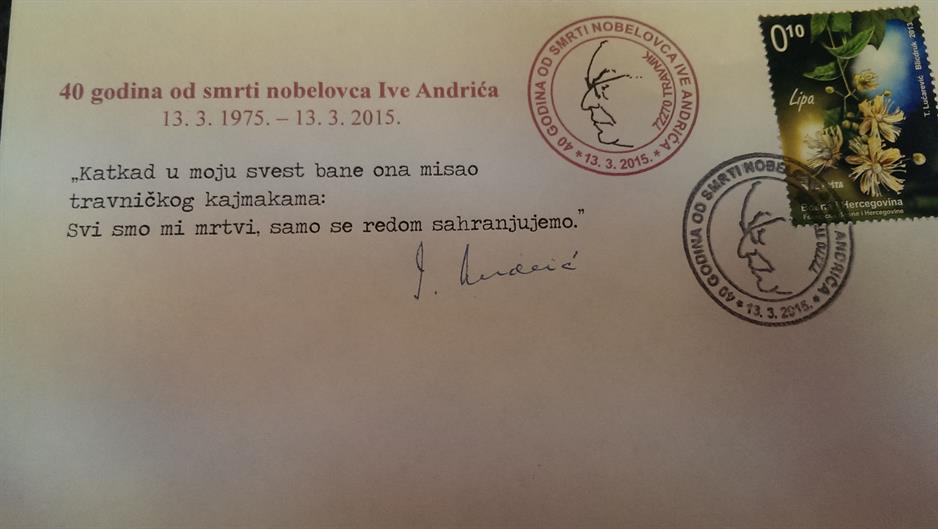 40 godina od smrti nobelovca Ive Andrića
13. 3. 1975. – 13. 3. 2015.
„Katkad u moju svest bane ona misao
travničkog kajmakama:
Svi smo mi mrtvi, samo se redom sahranjujemo.”
I. Andrić
40 GODINA OD SMRTI NOBELOVCA IVE ANDRIĆA
* 13. 3. 2015. *
72270 TRAVNIK
0,10
Lipa
T. Lučarević Blicdruk 2013
Bosna i Hercegovina
Federacija Bosne i Hercegovine
40 GODINA OD SMRTI NOBELOVCA IVE ANDRIĆA
* 13. 3. 2015. *